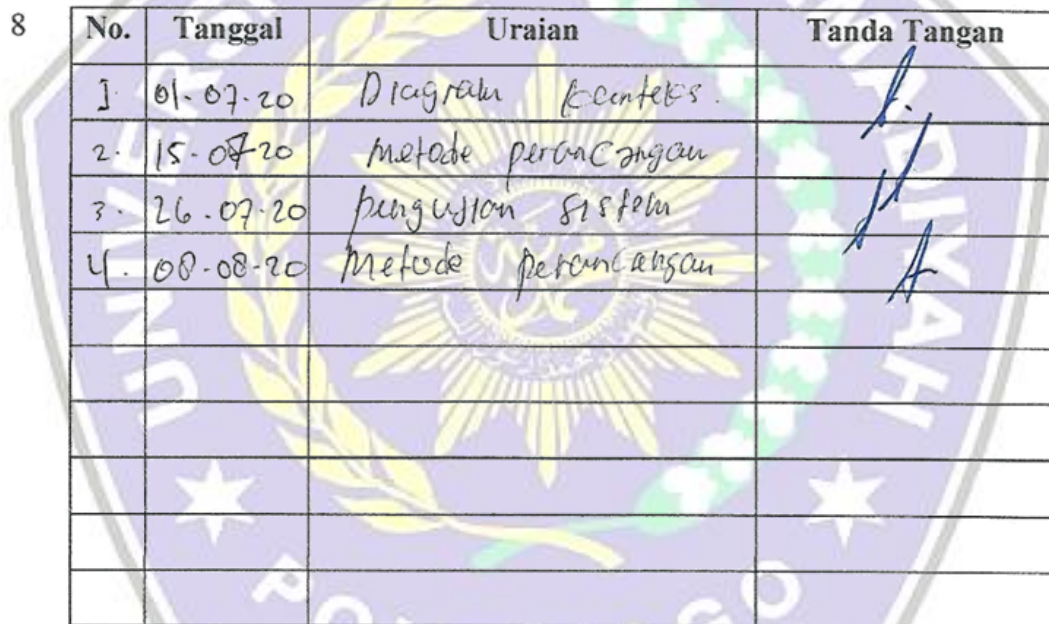 8
No. Tanggal Uraian Tanda Tangan
1. 01-07-20 Diagram konteks.
2. 15-07-20 Metode perancangan
3. 26-07-20 pengujian sistem
4. 08-08-20 Metode perancangan
UNIVERS
DIYAH
PO
GO